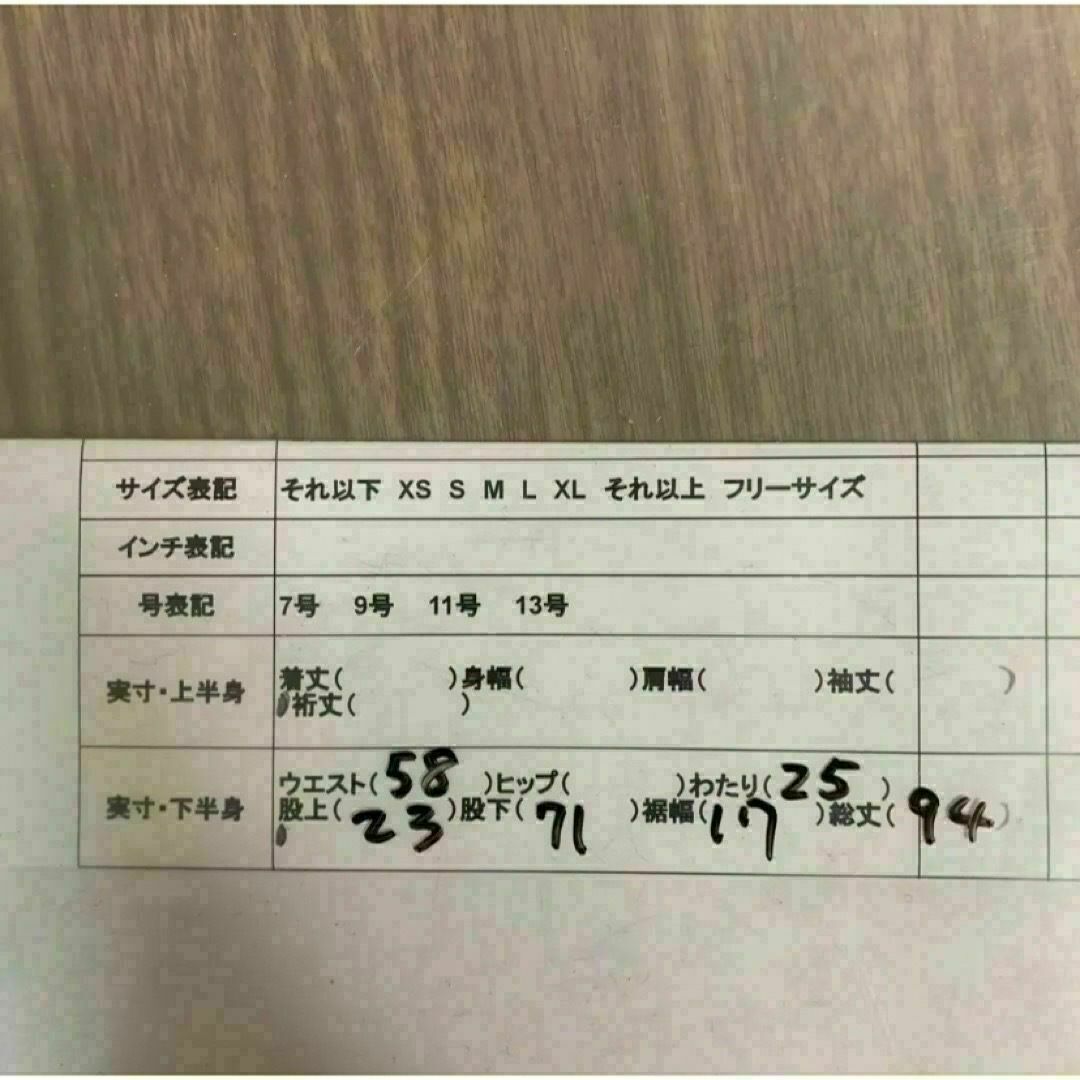 サイズ表記 それ以下 XS S M L XL それ以上 フリーサイズ
インチ表記
号表記 7号 9号 11号 13号
実寸・上半身 着丈( )身幅( )肩幅( )袖丈( )
裄丈( )
実寸・下半身 ウエスト(58)ヒップ( )わたり(25)
股上(23)股下(71)裾幅(17)総丈(94)